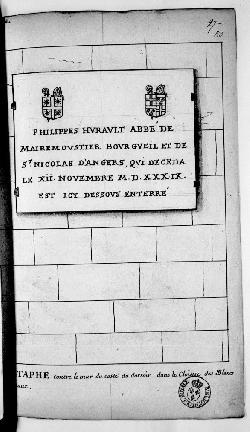 PHILIPPES HVRAVLT ABBÉ DE
MAIREMOVSTIER BOVRGVEIL ET DE
St NICOLAS D'ANGERS, QVI DECEDA
LE XII. NOVEMBRE M.D.XXXIX.
EST ICY DESSOVS ENTERRÉ
TAPHE contre le mur du costé du dortoir dans le Cloistre des Blancs